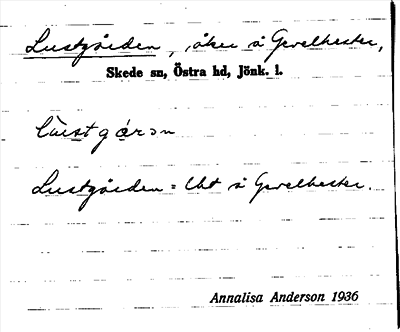 Lustgården, åker å Gevelhester,
Skede sn, Östra hd, Jönk. l.
Lùstgárən
Lustgården = Ukt å Gevelhester.
Annalisa Anderson 1936